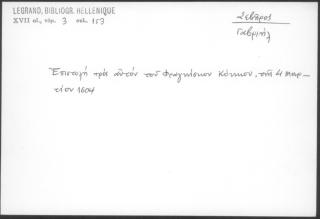 LEGRAND, BIBLIOGR. HELLENIQUE
XVII αἰ., τόμ. 3 σελ. 153
Σεβῆρος
Γαβριήλ
Ἐπιστολή πρός αὐτόν τοῦ Φραγκίσκου Κόκκου, τῆς 4 Μαρ-
τίου 1604